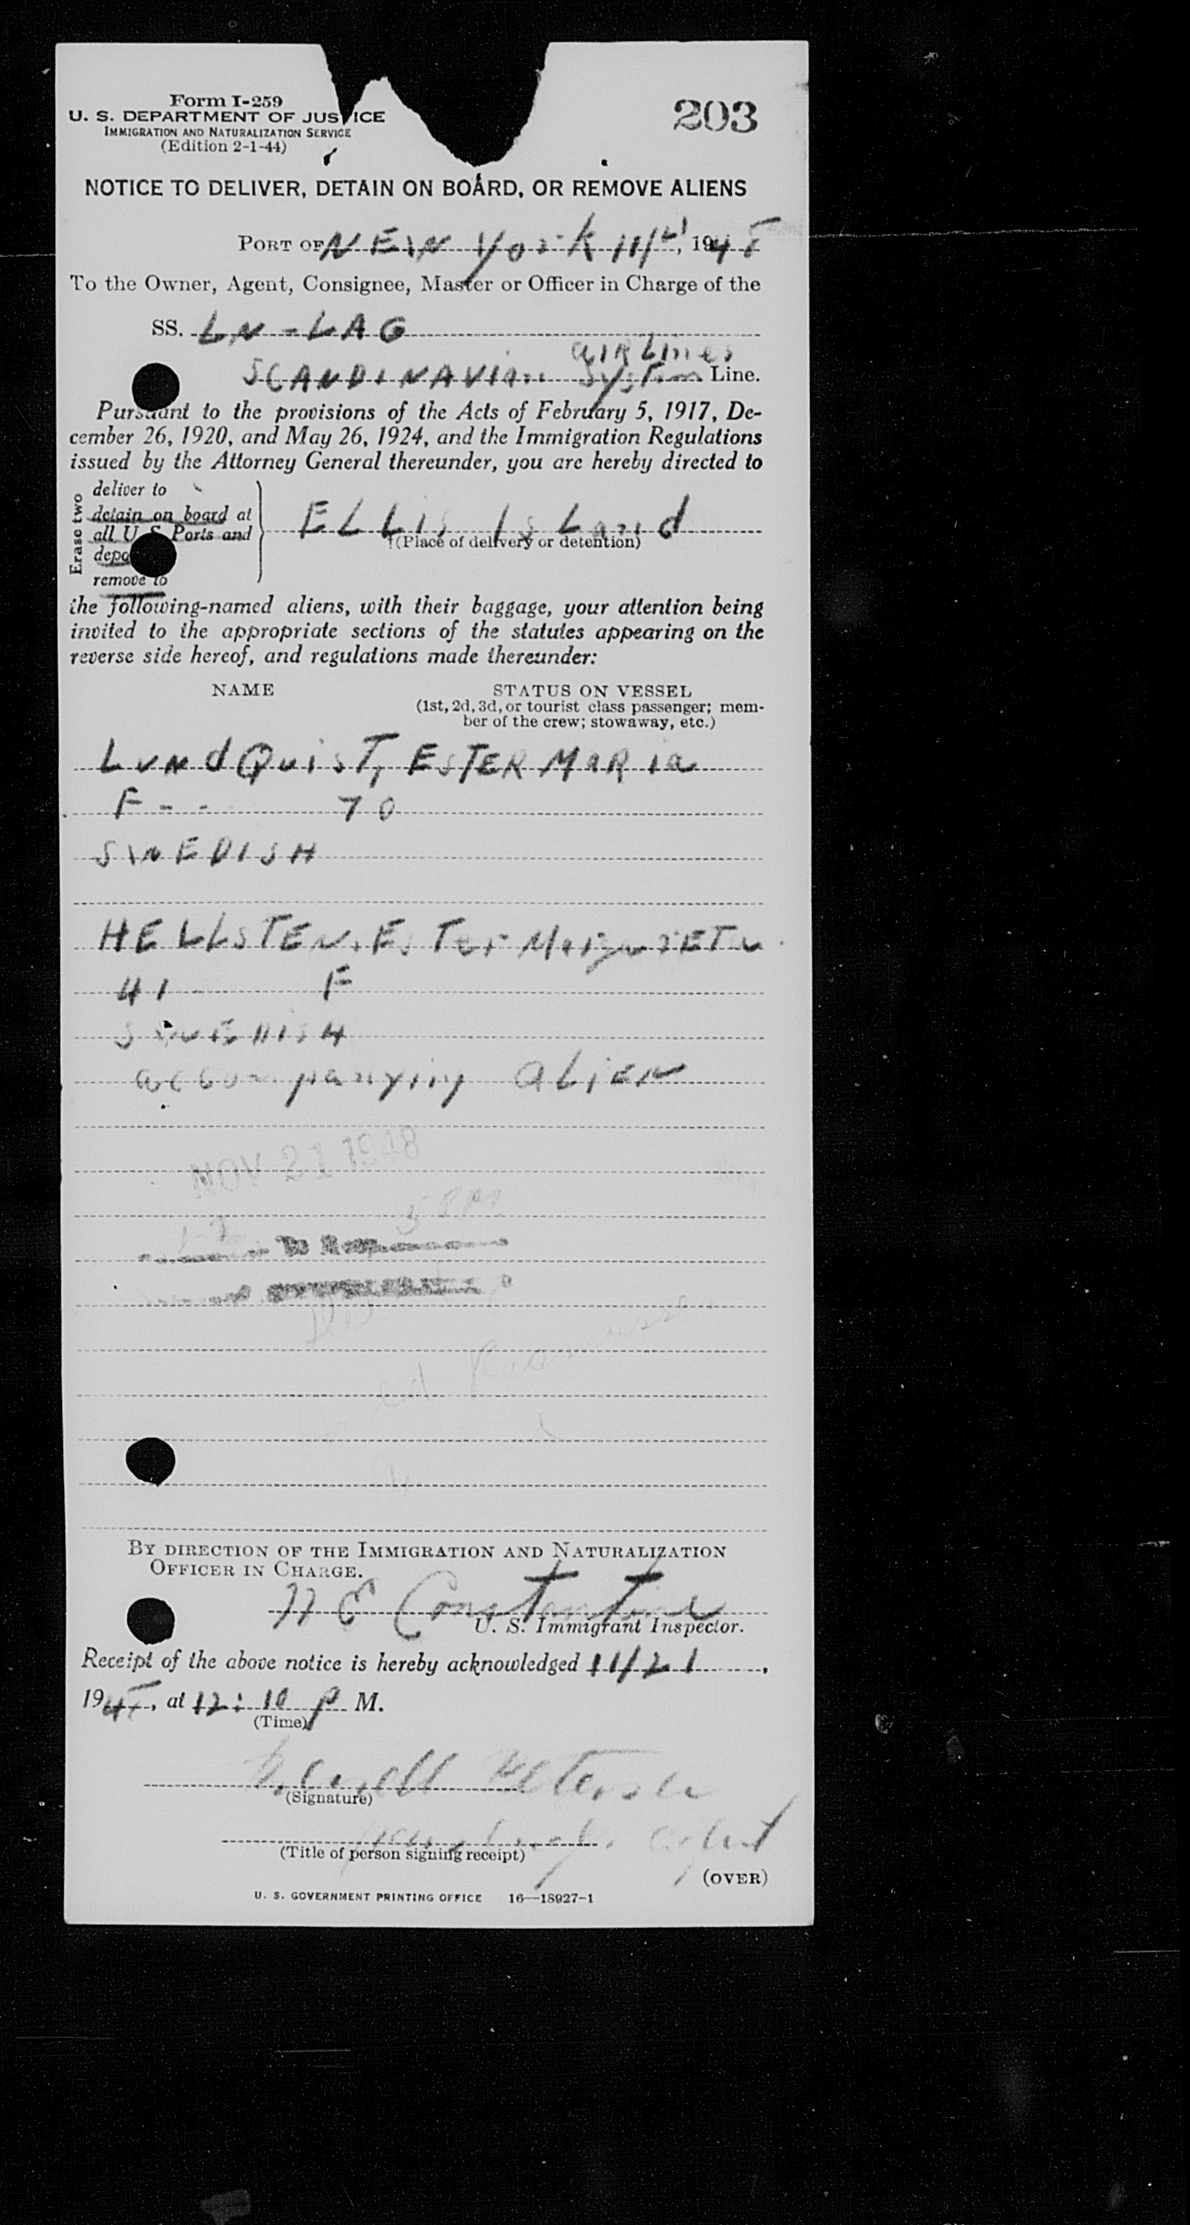 Form I-259
U. S. DEPARTMENT OF JUSTICE
IMMIGRATION AND NATURALIZATION SERVICE
(Edition 2-1-44)
203
NOTICE TO DELIVER, DETAIN ON BOARD, OR REMOVE ALIENS
PORT OF NEW York 11/21, 1948
To the Owner, Agent, Consignee, Master or Officer in Charge of the
SS. LN-LAG
AIRLines
SCANDINAVian System Line.
Pursuant to the provisions of the Acts of February 5, 1917, De-
cember 26, 1920, and May 26, 1924, and the Immigration Regulations
issued by the Attorney General thereunder, you are hereby directed to
Erase two
deliver to
detain on board at
all U S Ports and
remove to
ELLIS ISLand
(Place of delivery or detention)
the following-named aliens, with their baggage, your attention being
invited to the appropriate sections of the statutes appearing on the
reverse side hereof, and regulations made thereunder:
NAME STATUS ON VESSEL
(1st, 2d, 3d, or tourist class passenger; mem-
ber of the crew; stowaway, etc.)
LundQuisT, ESTER MaRia
F-- 70
SWEDISH
HELLSTEN, EsTer MargarETa
41 F
SWEDISH
accompanying ALiEN
NOV 21 1948
BY DIRECTION OF THE IMMIGRATION AND NATURALIZATION
OFFICER IN CHARGE.
N E Constantine
U. S. Immigrant Inspector.
Receipt of the above notice is hereby acknowledged 11/21,
1948, at 12:10 P M.
(Time)
(Signature)
agent
(Title of person signing receipt)
(OVER)
U. S. GOVERNMENT PRINTING OFFICE 16—18927-1